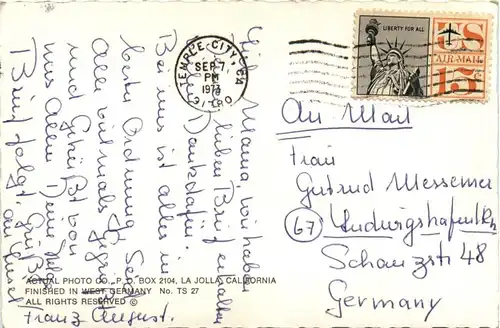 LIBERTY FOR ALL
US
AIR MAIL
15¢
TEMPLE CITY, CA
SEP 7,
PM
1973
91780
Mama, wir haben
lieben Brief erhalten
Dank dafür.
Bei uns ist alles in
bester Ordnung. Sei
Alle vielmals gegrüßt
und geküßt von
uns Allen Deine
Brief folgt.
Franz August.
Air Mail
Frau
Gertrud Messemer
67 Ludwigshafen/Rh
Schanzstr 48
Germany
ACTUAL PHOTO CO., P. O. BOX 2104, LA JOLLA, CALIFORNIA
FINISHED IN WEST GERMANY No. TS 27
ALL RIGHTS RESERVED ©